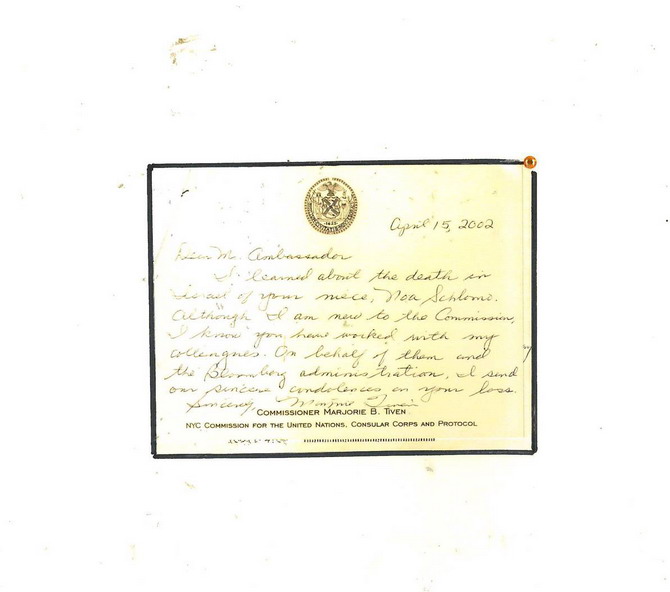 April 15, 2002
Dear Mr. Ambassador
I learned about the death in
Israel of your niece, Noa Schlomo.
Although I am new to the Commission,
I know you have worked with my
colleagues. On behalf of them and
the Bloomberg administration, I send
our sincere condolences on your loss.
Sincerely, Marjorie Tiven
COMMISSIONER MARJORIE B. TIVEN
NYC COMMISSION FOR THE UNITED NATIONS, CONSULAR CORPS AND PROTOCOL